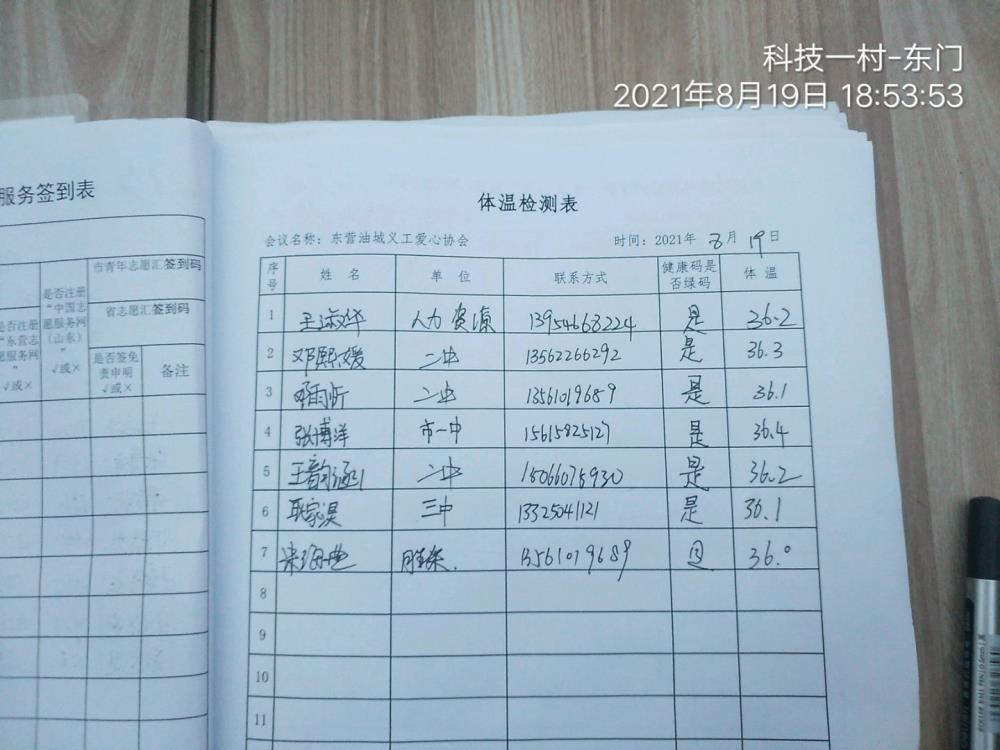 科技一村-东门
2021年8月19日 18:53:53
服务签到表
市青年志愿汇签到码
省志愿汇签到码
是否注册
“中国志
愿服务网
(山东)
”
√或×
是否注册
“东营志
愿服务网
”
√或×
是否签免
责申明
√或×
备注
体温检测表
会议名称：东营油城义工爱心协会 时间：2021年 8月 19日
序号 姓 名 单 位 联系方式 健康码是否绿码 体 温
1 王淑华 人力资源 13954668224 是 36.2
2 邓熙媛 二中 13562266292 是 36.3
3 邓雨昕 二中 13561019689 是 36.1
4 张博洋 市一中 15615825127 是 36.4
5 王韵涵 二中 15066075930 是 36.2
6 耿家淏 三中 13325041121 是 36.1
7 胜采. 13561019689 是 36.0
8
9
10
11